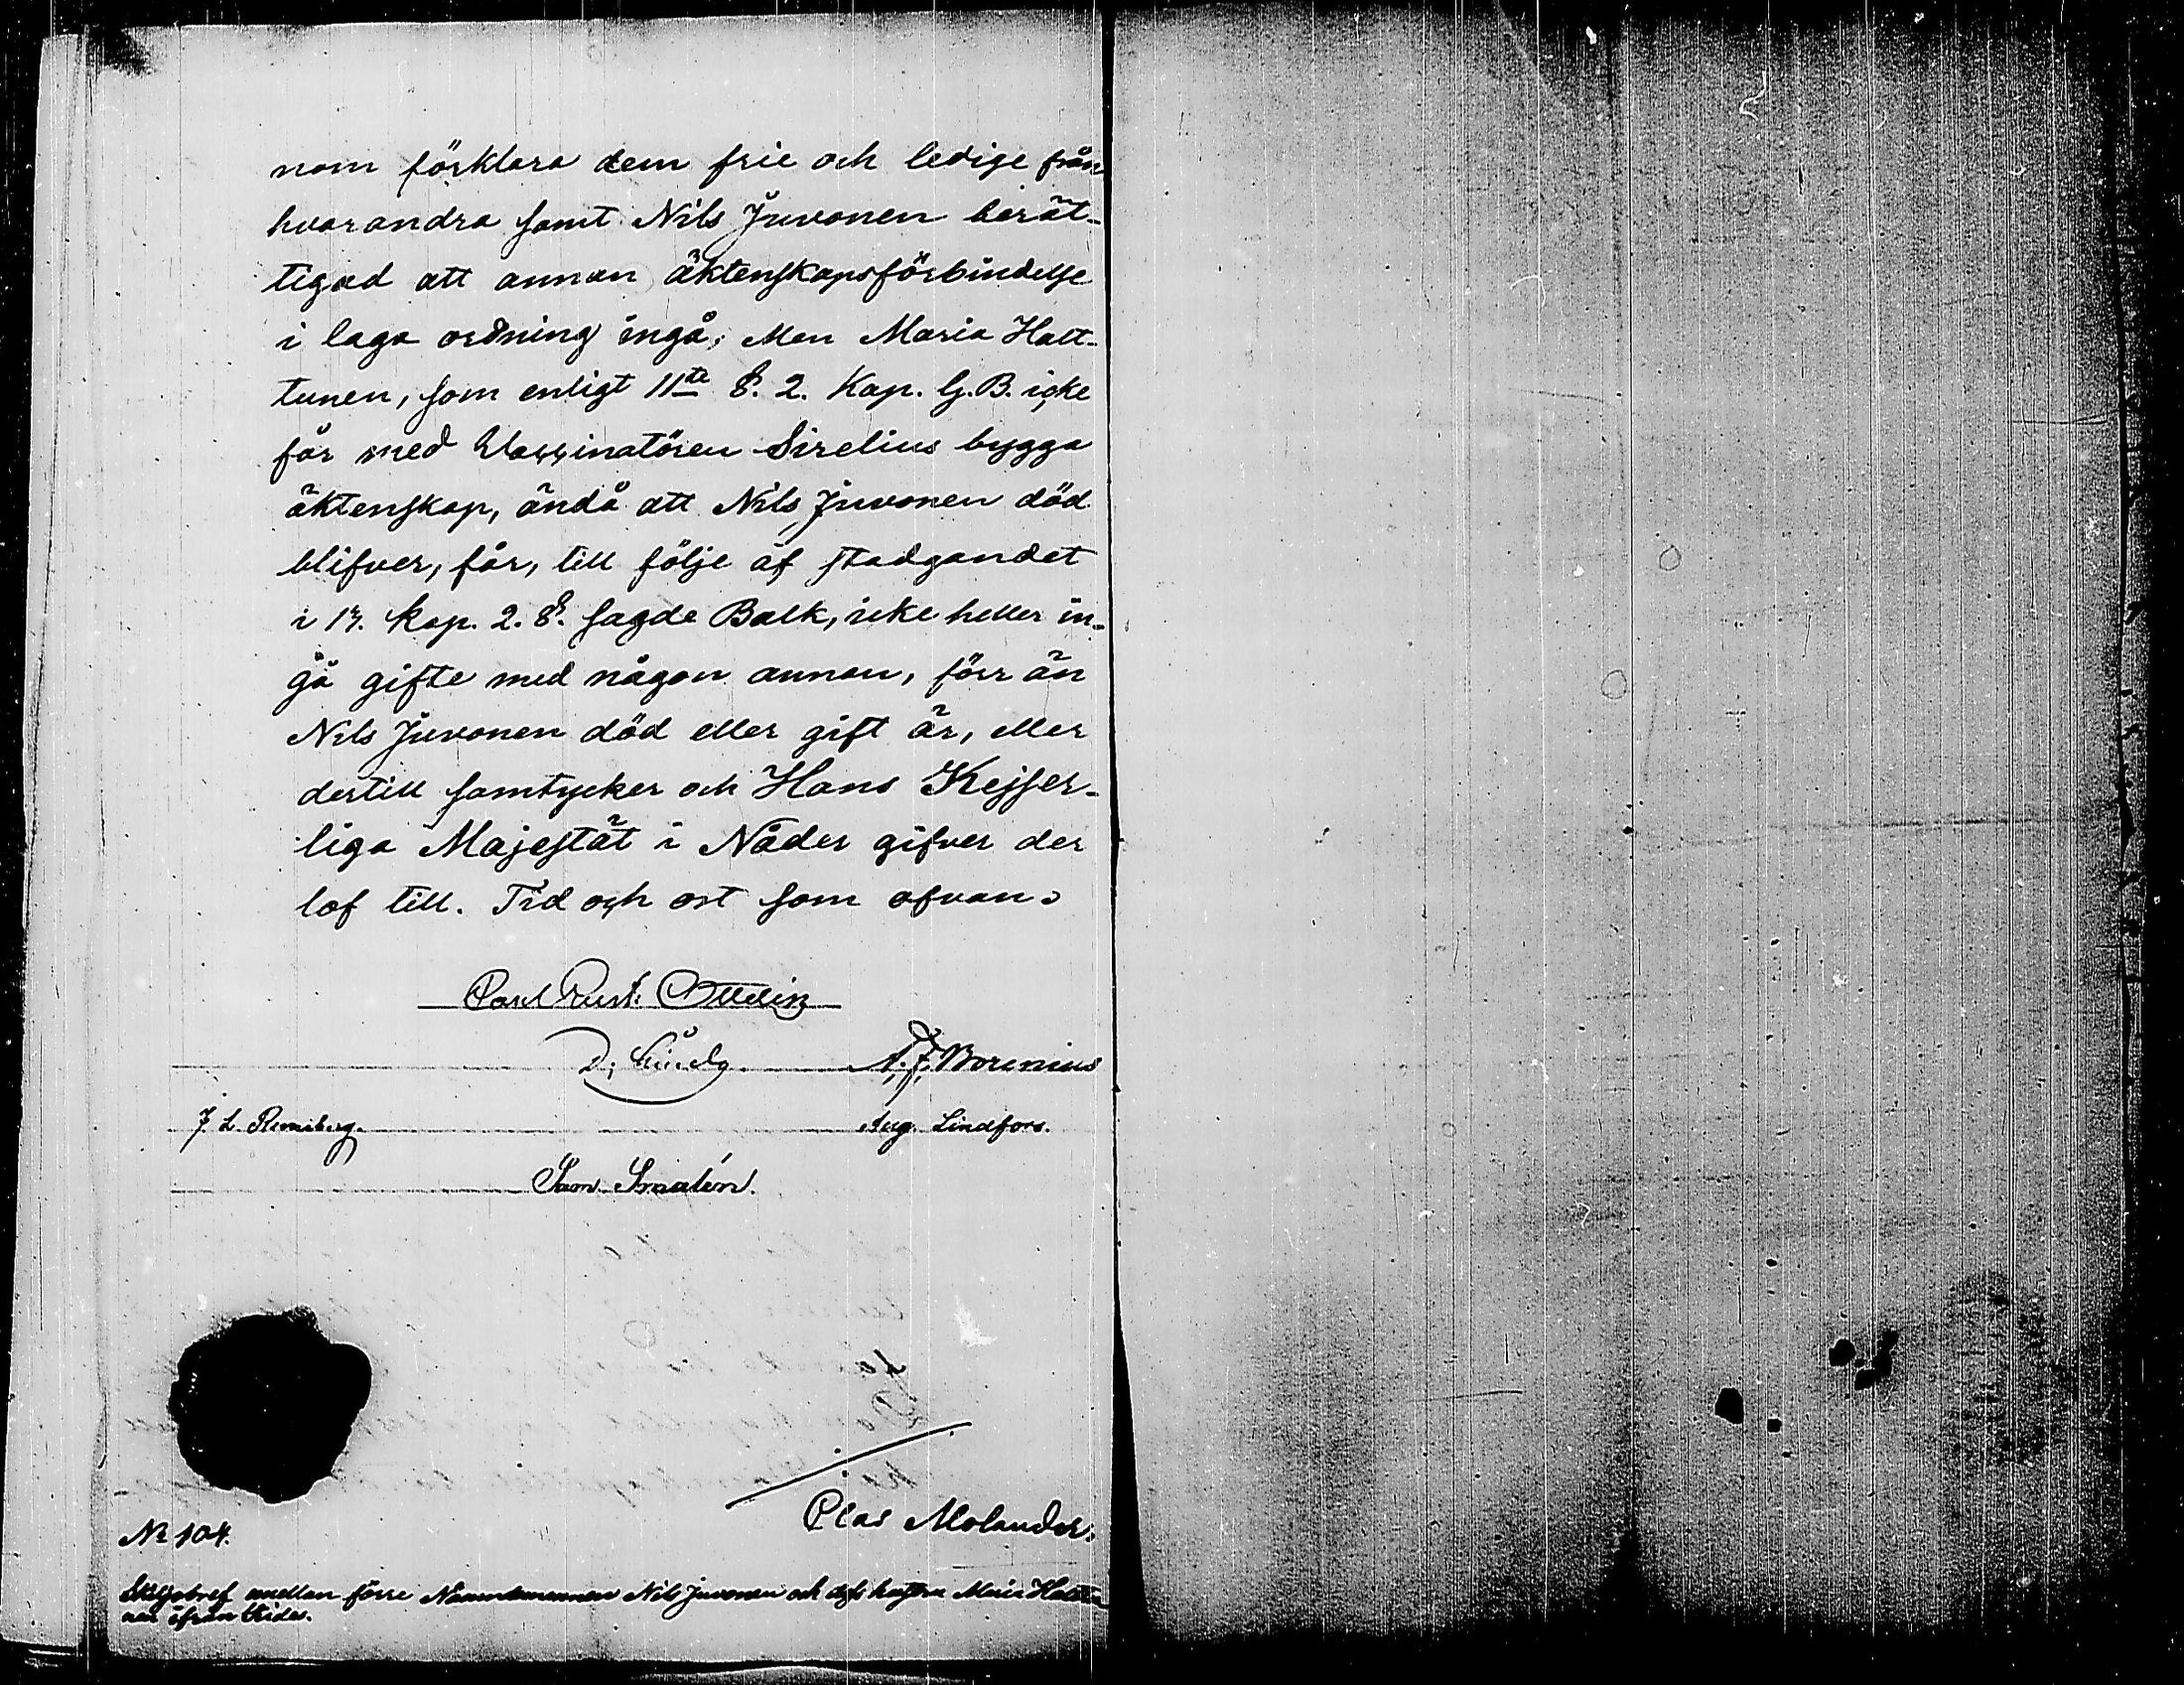 nom förklara dem frie och ledige från
hvarandra samt Nils Juvonen berät-
tigad att annan äktenskapsförbindelse
i laga ordning ingå; Men Maria Hatt-
tunen, som enligt 11te §. 2. Kap. G.B. icke
får med Vaccinatören Sirelius bygga
äktenskap, ändå att Nils Juvonen död
blifver, får, till följe af stadgandet
i 13. kap. 2. §. sagde Balk, icke heller in-
gå gifte med någon annan, förr än
Nils Juvonen död eller gift är, eller
dertill samtycker och Hans Kejser-
liga Majestät i Nåder gifver der
lof till. Tid och ort som ofvan.
Carl Gust. Ottelin
A. J. Borenius
J. L. Runeberg.
Aug. Lindfors.
Sam. Smalén.
Clas Molander.
No 104.
Skiljobref mellan förre Nämndemannen Nils Juvonen och dess hustru Maria Hattu
nen ifrån